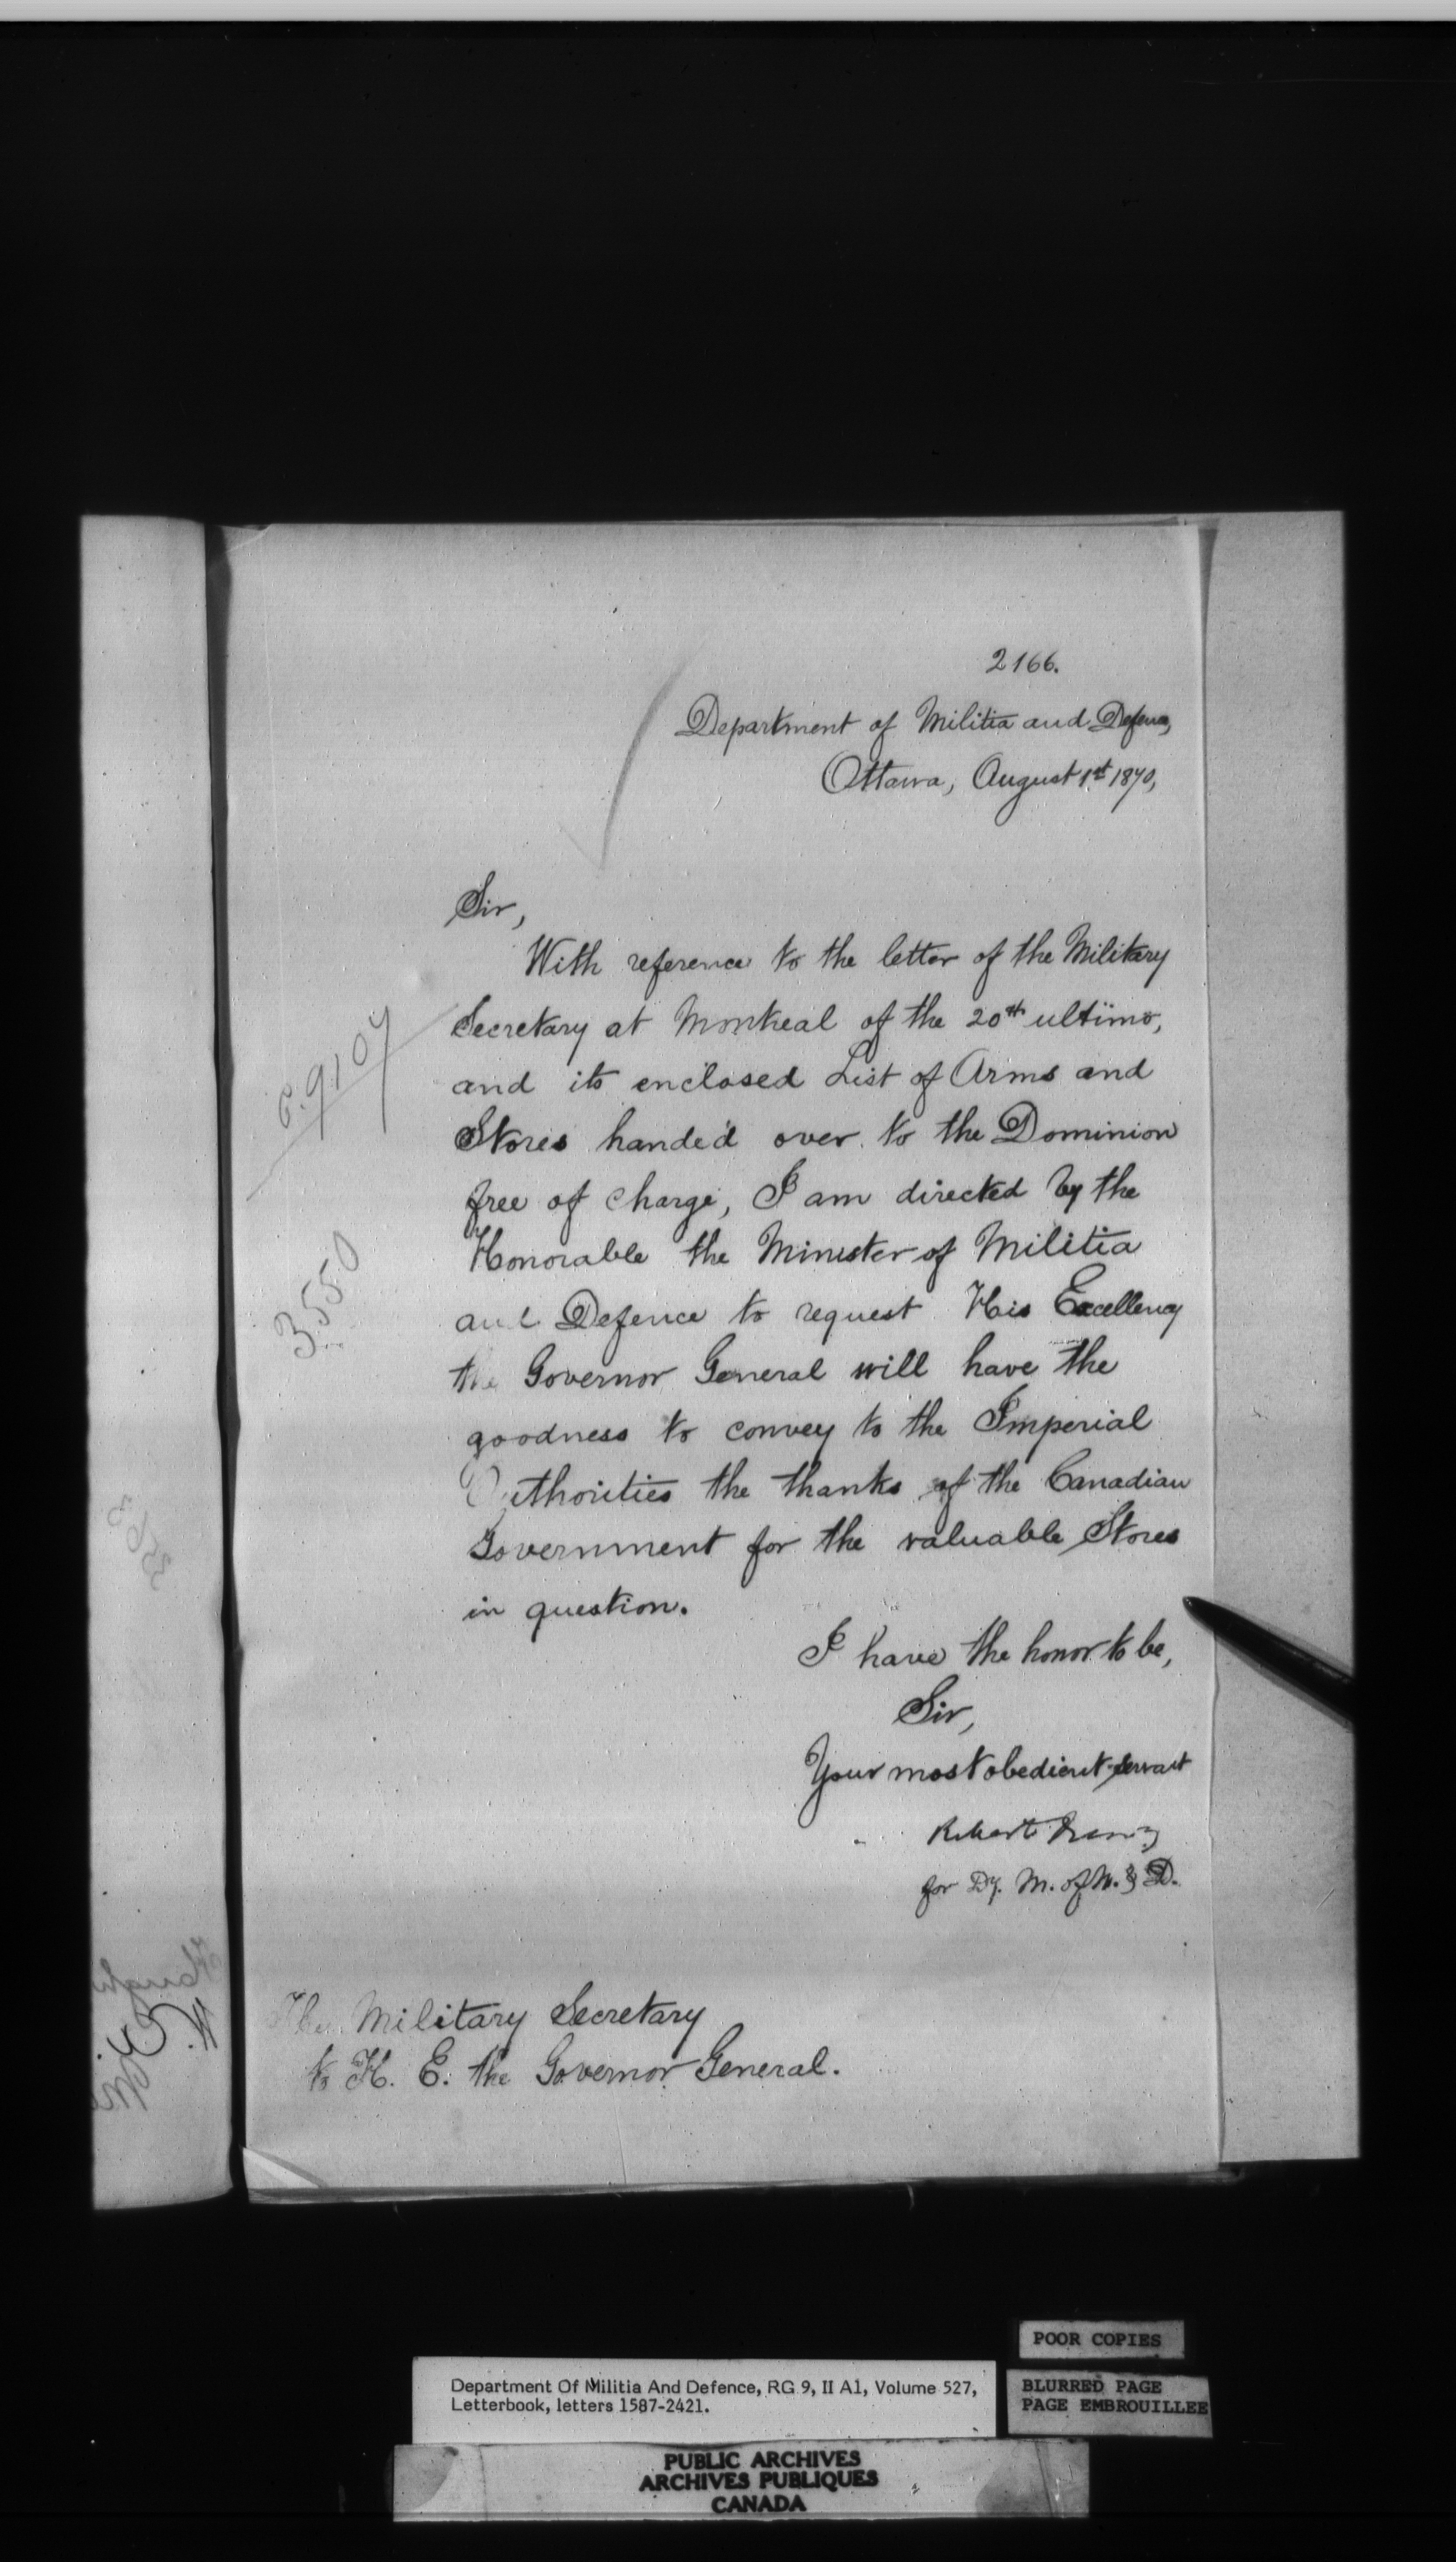 2166.
Department of Militia and Defence,
Ottawa, August 1st 1870,
Sir,
With reference to the letter of the Military
Secretary at Montreal of the 20th ultimo,
and its enclosed List of Arms and
Stores handed over to the Dominion
free of charge, I am directed by the
Honorable the Minister of Militia
and Defence to request His Excellency
the Governor General will have the
goodness to convey to the Imperial
Authorities the thanks of the Canadian
Government for the valuable Stores
in question.
I have the honor to be,
Sir,
Your most obedient servant
Robert
for Dy. M. of M. & D.
The Military Secretary
to H. E. the Governor General.
3550
POOR COPIES
BLURRED PAGE
PAGE EMBROUILLEE
Department Of Militia And Defence, RG 9, II A1, Volume 527,
Letterbook, letters 1587-2421.
PUBLIC ARCHIVES
ARCHIVES PUBLIQUES
CANADA